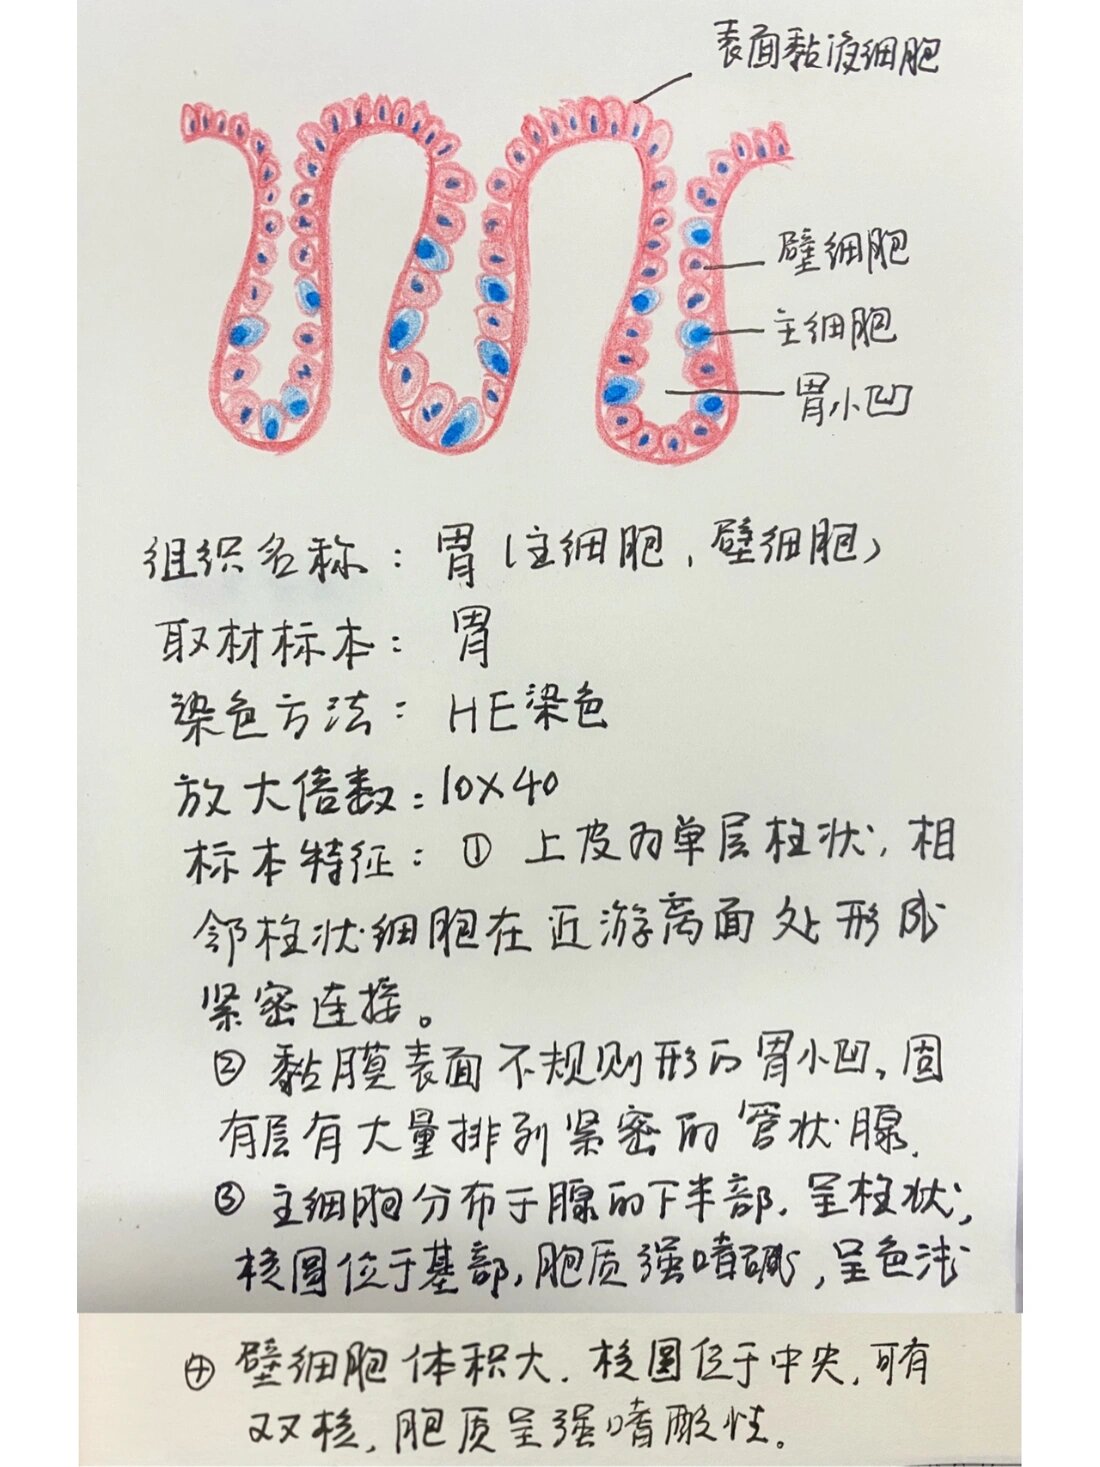 表面黏液细胞
壁细胞
主细胞
胃小凹
组织名称：胃（主细胞、壁细胞）
取材标本：胃
染色方法：HE染色
放大倍数：10×40
标本特征：① 上皮为单层柱状，相
邻柱状细胞在近游离面处形成
紧密连接。
② 黏膜表面不规则形的胃小凹，固
有层有大量排列紧密的管状腺．
③ 主细胞分布于腺的下半部．呈柱状，
核圆位于基部，胞质强嗜碱，呈色浅
④ 壁细胞体积大．核圆位于中央，可有
双核，胞质呈强嗜酸性。